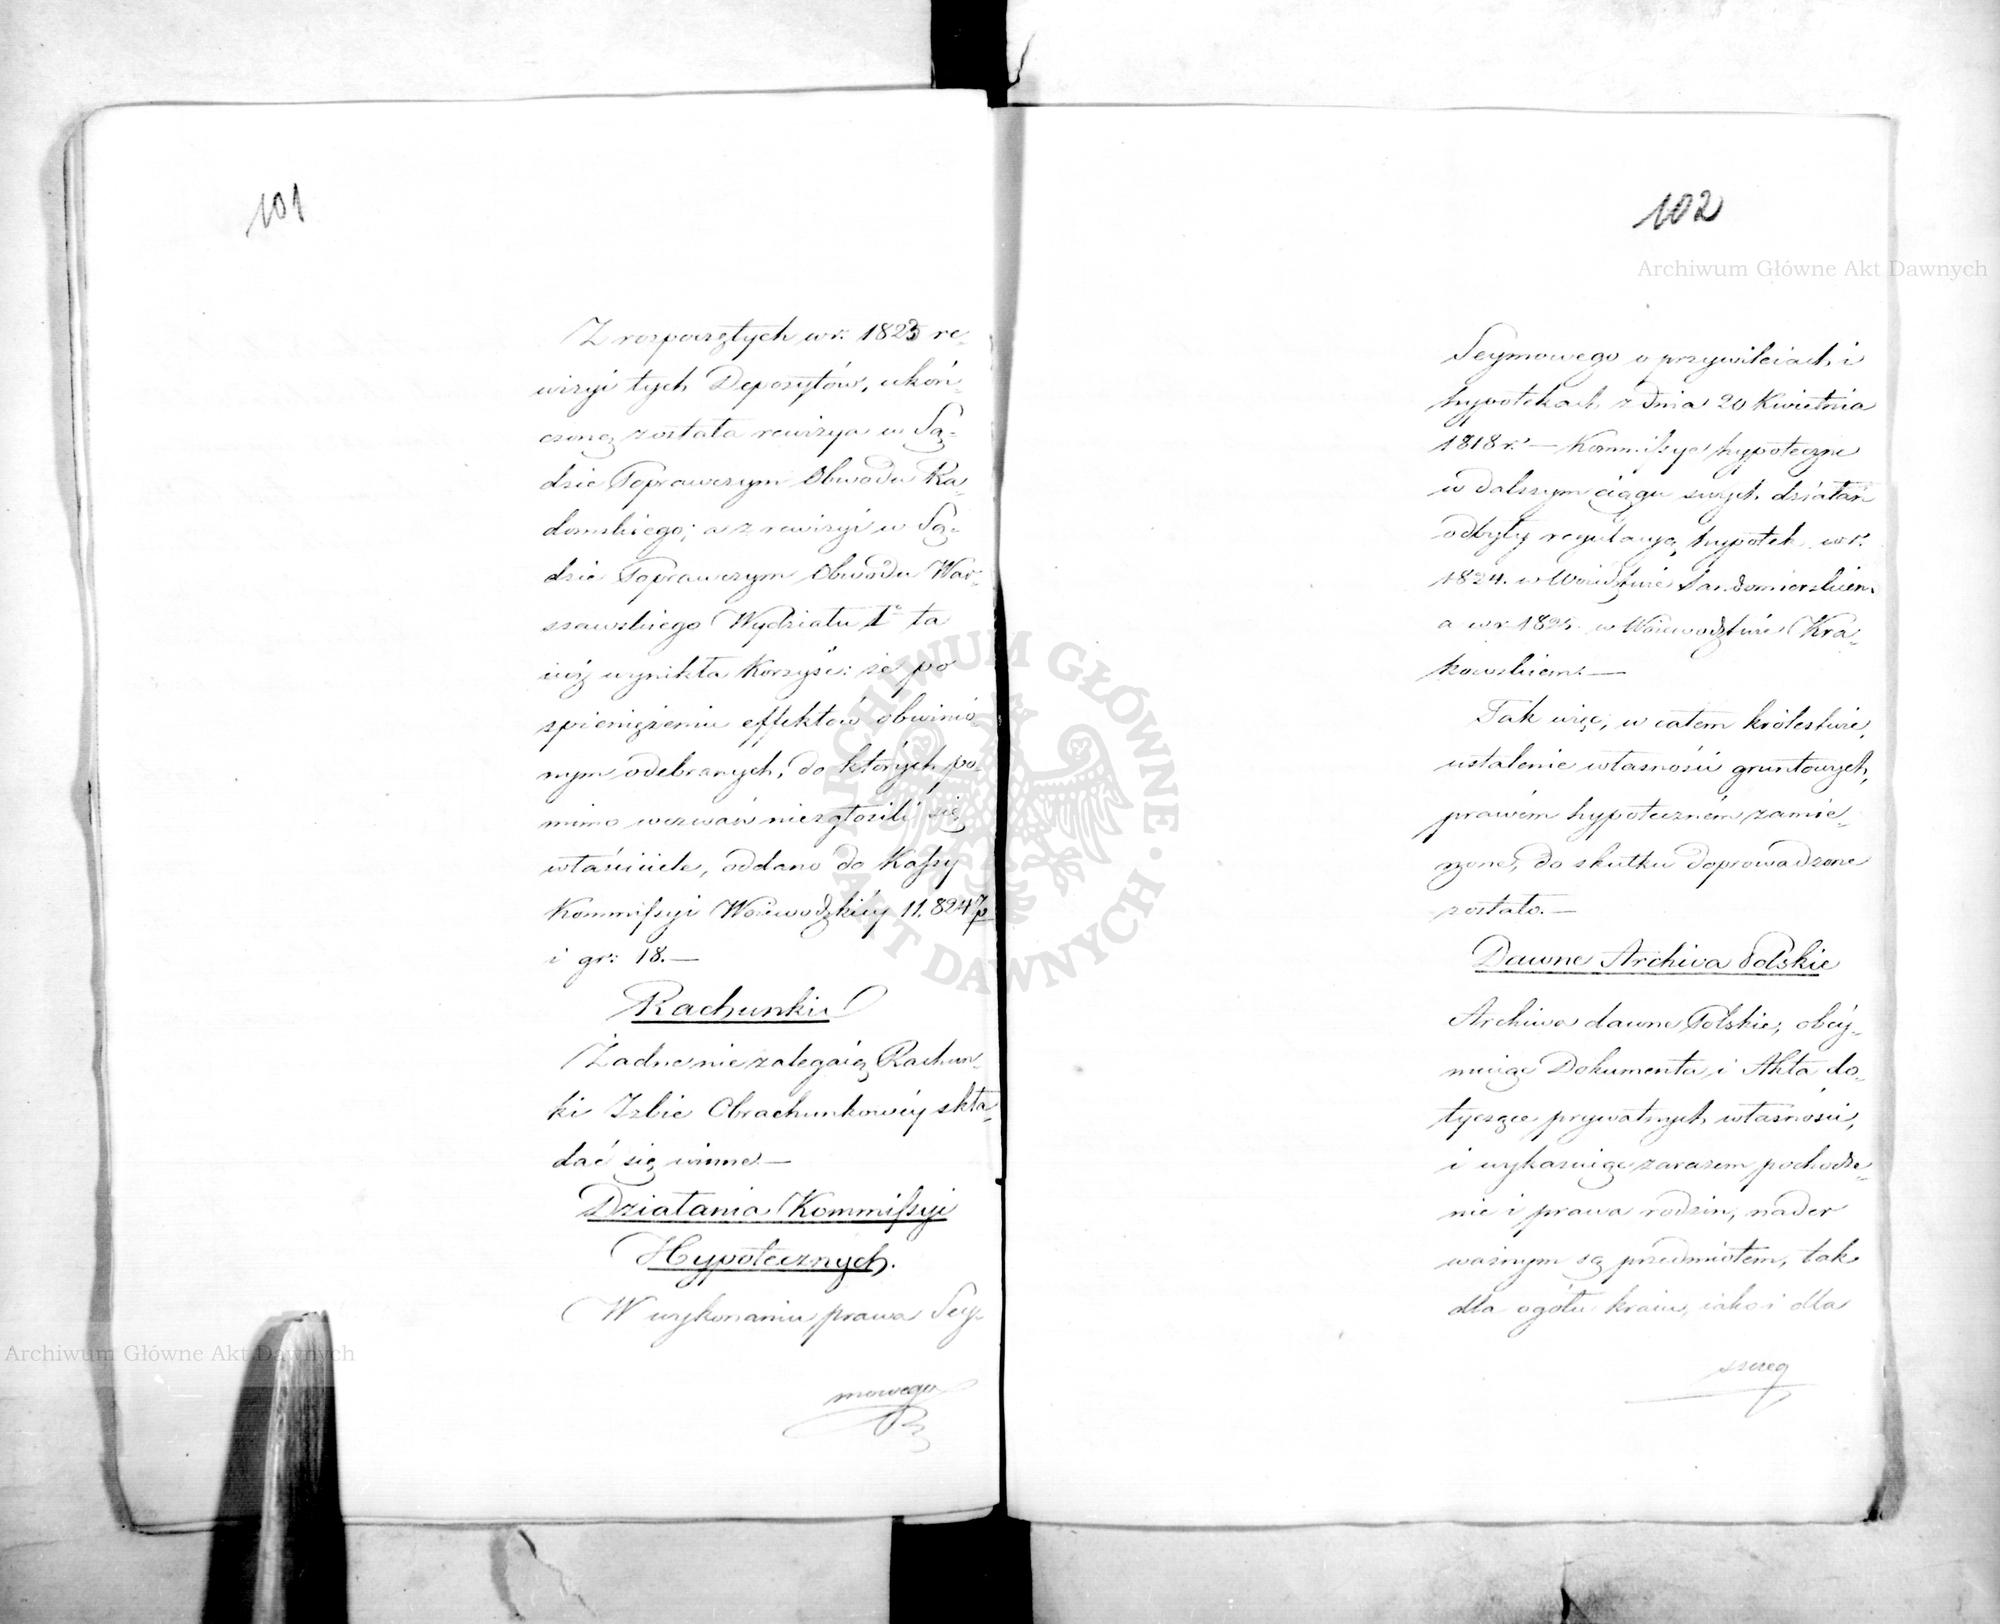 101
Z rozpoczętych w r: 1825 re-
wizyi tych Depozytów, ukoń-
czoną została rewizya w Są-
dzie Poprawczym Obwodu Ra-
domskiego; a z rewizyi w Są-
dzie Poprawczym Obwodu War-
szawskiego Wydziału 1º ta
iuż wynikła Korzyść: że po
spieniężeniu effektów obwinio-
nym odebranych, do których po-
mimo wezwań niezgłosili się
właściciele, oddano do Kassy
Kommissyi Woiewodzkiey 11.824 zp
i gr: 18.—
Rachunki
Żadne nie zalegaią Rachun-
ki Izbie Obrachunkowéy skła-
dać się winne.—
Działania Kommissyi
Hypotecznych.
W wykonaniu prawa Sey-
mowego
102
Seymowego o przywileiach i
hypotekach z dnia 20 Kwietnia
1818 r.— Kommissye hypoteczne
w dalszym ciągu swych działań
odbyły regulacyą hypotek w r:
1824. w Woiewdztwie Sandomierskiem
a w r. 1825. w Woiewodztwie Kra-
kowskiem.—
Tak więc, w całem królestwie,
ustalenie własności gruntowych,
prawem hypotecznem zamie-
rzone, do skutku doprowadzone
zostało.—
Dawne Archiva Polskie
Archiwa dawne Polskie, obey-
muiące Dokumenta i Akta do-
tyczące prywatnych własności,
i wykazuiące zarazem pochodze-
nie i prawa rodzin, nader
ważnym są przedmiotem, tak
dla ogółu kraiu, iako i dla
szczeg
Archiwum Główne Akt Dawnych
Archiwum Główne Akt Dawnych
ARCHIWUM GŁÓWNE · AKT DAWNYCH ·